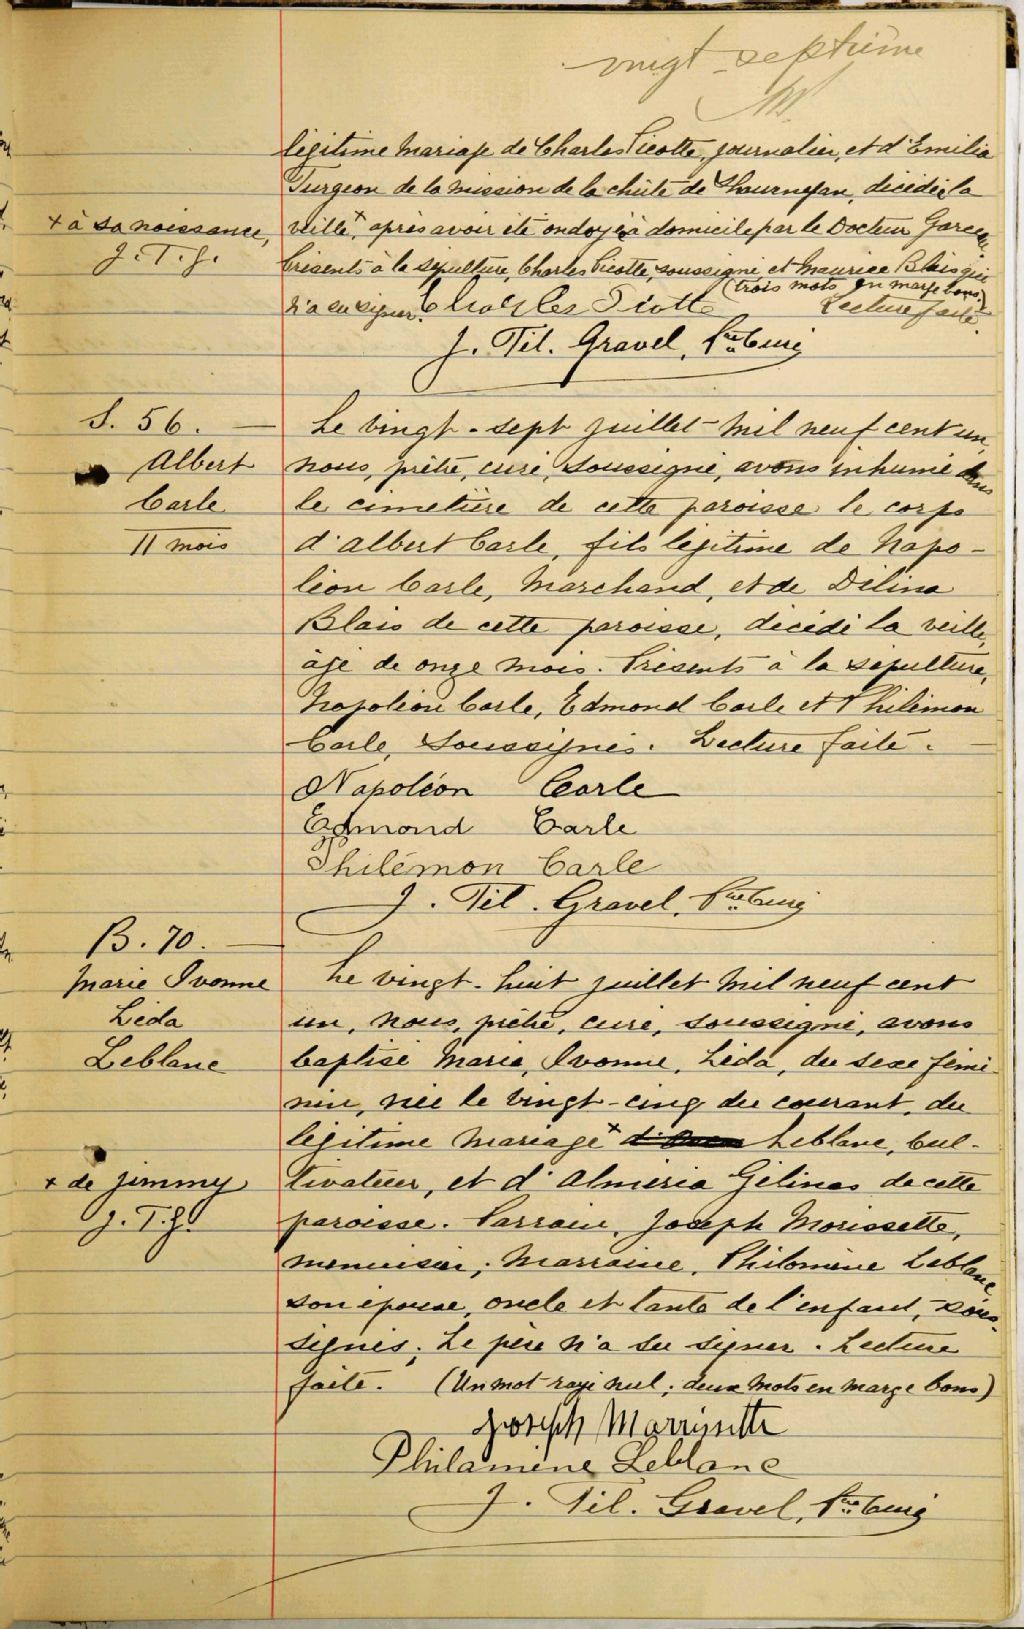 vingt-septième
légitime mariage de Charles Picotte, journalier, et d'Emilia
Turgeon de la mission de la chûte de Shawinegan, décédé la
+ à sa naissance,
J. T. G.
veille + après avoir été ondoyé à domicile par le Docteur Garceau.
Présents à la sépulture, Charles Picotte, soussigné et Maurice Blais qui
n'a su signer. (trois mots en marge bons) Lecture faite.
Charles Picotte
J. Til. Gravel, Ptre Curé
S. 56.
Albert
Carle
11 mois
Le vingt-sept juillet mil neuf cent un,
nous, prêtre, curé, soussigné, avons inhumé dans
le cimetière de cette paroisse le corps
d'Albert Carle, fils légitime de Napo-
léon Carle, Marchand, et de Délina
Blais de cette paroisse, décédé la veille,
âgé de onze mois. Présents à la sépulture,
Napoléon Carle, Edmond Carle et Philémon
Carle, soussignés. Lecture faite.
Napoléon Carle
Edmond Carle
Philémon Carle
J. Til. Gravel, Ptre Curé
B. 70.
Marie Ivonne
Léda
Leblanc
Le vingt-huit juillet mil neuf cent
un, nous, prêtre, curé, soussigné, avons
baptisé Marie, Ivonne, Léda, du sexe fémi-
nin, née le vingt-cinq du courant, du
légitime mariage + Leblanc, Cul-
+ de jimmy
J. T. G.
tivateur, et d'Almeria Gélinas de cette
paroisse. Parrain, Joseph Morissette,
menuisier; Marraine, Philomène Leblanc
son épouse, oncle et tante de l'enfant, sous-
signés; Le père n'a su signer. Lecture
faite. (Un mot rayé nul; deux mots en marge bons)
Joseph Morrissette
Philamène Leblanc
J. Til. Gravel, Ptre Curé